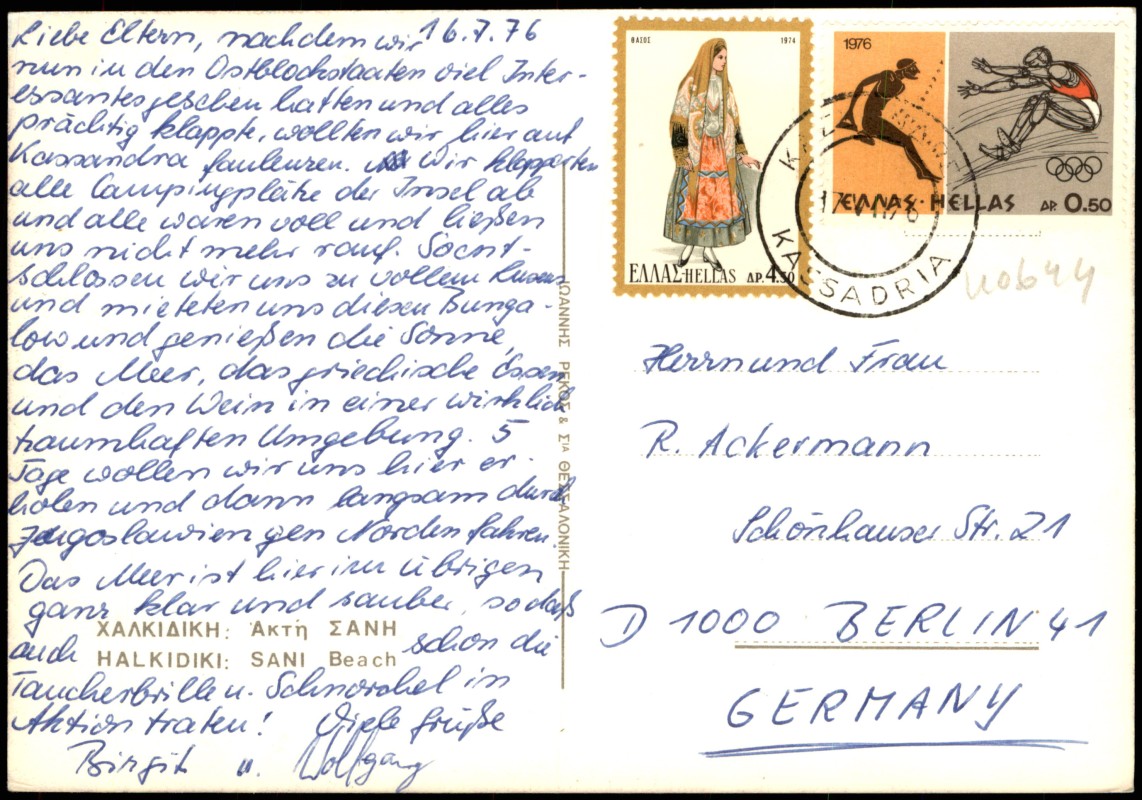 16.7.76
Liebe Eltern, nachdem wir
nun in den Ostblockstaaten viel Inter-
essantes gesehen hatten und alles
prächtig klappte, wollten wir hier auf
Kassandra faulenzen. Wir klapperten
alle Campingplätze der Insel ab
und alle waren voll und ließen
uns nicht mehr rauf. Soent-
schlossen wir uns zu vollem Luxus
und mieteten uns diesen Bunga-
low und genießen die Sonne,
das Meer, das griechische Essen
und den Wein in einer wirklich
traumhaften Umgebung. 5
Tage wollen wir uns hier er-
holen und dann langsam durch
Jugoslawien gen Norden fahren.
Das Meer ist hier im übrigen
ganz klar und sauber, so daß
auch schon die
Taucherbrille u. Schnorchel in
Aktion traten! Viele Grüße
Birgit u. Wolfgang
ΧΑΛΚΙΔΙΚΗ: Ἀκτή ΣΑΝΗ
HALKIDIKI: SANI Beach
ΙΩΑΝΝΗΣ ΡΕΚΟΣ & ΣΙΑ ΘΕΣΣΑΛΟΝΙΚΗ
ΘΑΣΟΣ 1974
ΕΛΛΑΣ-HELLAS ΔΡ. 4.50
1976
ΕΛΛΑΣ·HELLAS ΔΡ. 0.50
KASSADRIA
110644
Herrn und Frau
R. Ackermann
Schönhauser Str. 21
D 1000 BERLIN 41
GERMANY